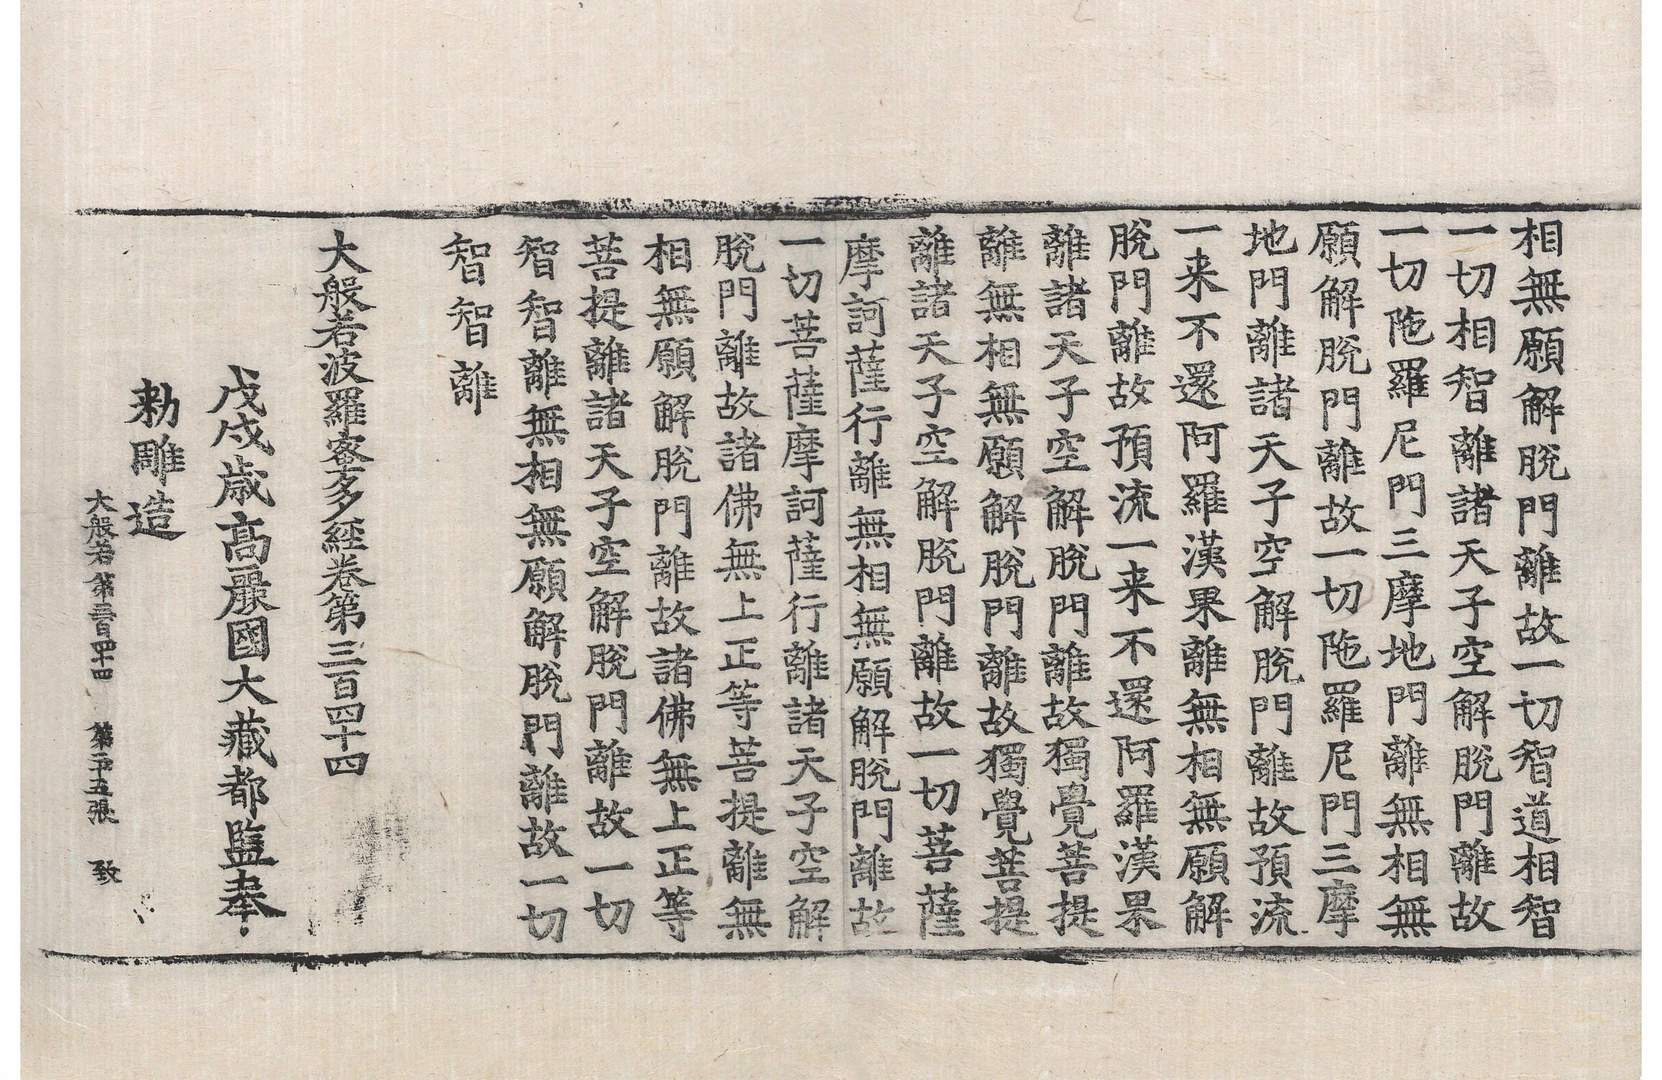 相無願解脫門離故一切智道相智
一切相智離諸天子空解脫門離故
一切陁羅尼門三摩地門離無相無
願解脫門離故一切陁羅尼門三摩
地門離諸天子空解脫門離故預流
一来不還阿羅漢果離無相無願解
脫門離故預流一来不還阿羅漢果
離諸天子空解脫門離故獨覺菩提
離無相無願解脫門離故獨覺菩提
離諸天子空解脫門離故一切菩薩
摩訶薩行離無相無願解脫門離故
一切菩薩摩訶薩行離諸天子空解
脫門離故諸佛無上正等菩提離無
相無願解脫門離故諸佛無上正等
菩提離諸天子空解脫門離故一切
智智離無相無願解脫門離故一切
智智離
大般若波羅蜜多經卷第三百四十四
戊戌歲高麗國大藏都監奉
勑雕造
大般若第三百四十四 第二十五張 致